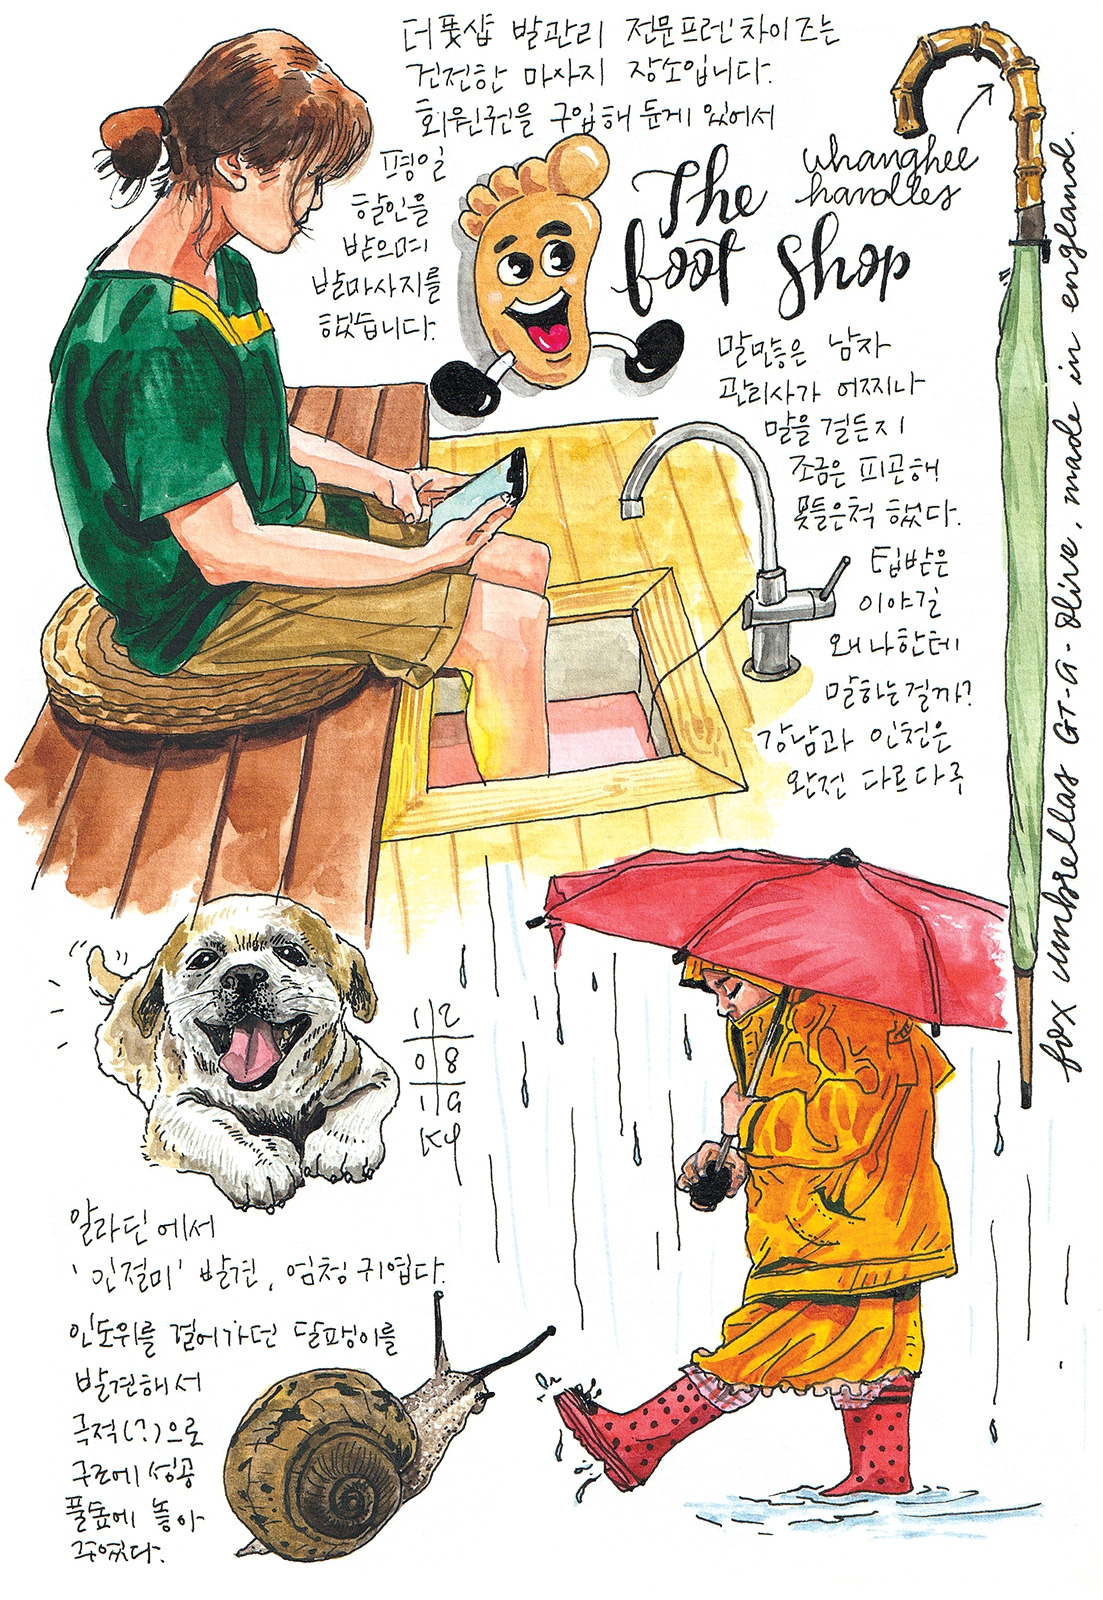 더풋샵 발관리 전문프렌차이즈는
건전한 마사지 장소입니다.
회원권을 구입해 둔게 있어서
평일
할인을
받으며
발마사지를
했습니다.
The
foot Shop
whanghee
handles
말많은 남자
관리사가 어찌나
말을 걸든지
조금은 피곤해
못들은척 했다.
팁받은
이야길
왜 나한테
말하는걸까?
강남과 인천은
완전 다르다구
fox umbrellas GT-A-olive, made in england.
12
08
19
Ky
알라딘에서
'인절미' 발견, 엄청 귀엽다.
인도위를 걸어가던 달팽이를
발견해서
극적(?)으로
구조에 성공
풀숲에 놓아
주었다.